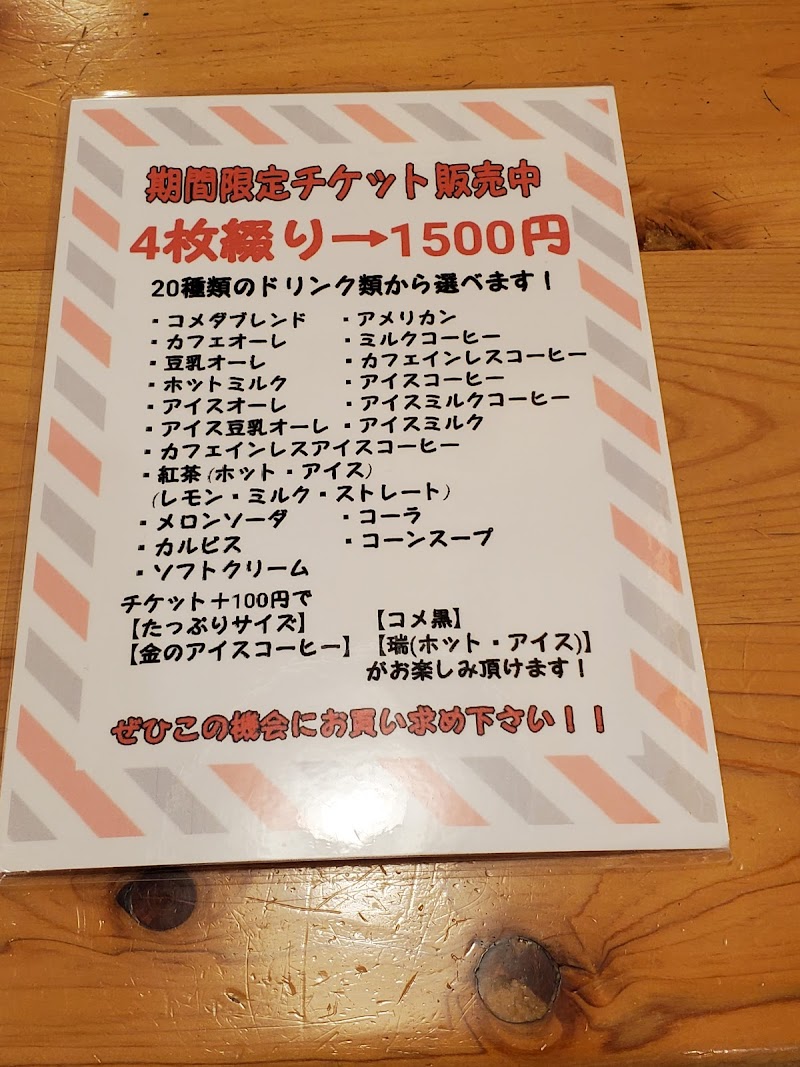 期間限定チケット販売中
4枚綴り→1500円
20種類のドリンク類から選べます！
・コメダブレンド ・アメリカン
・カフェオーレ ・ミルクコーヒー
・豆乳オーレ ・カフェインレスコーヒー
・ホットミルク ・アイスコーヒー
・アイスオーレ ・アイスミルクコーヒー
・アイス豆乳オーレ ・アイスミルク
・カフェインレスアイスコーヒー
・紅茶(ホット・アイス)
(レモン・ミルク・ストレート)
・メロンソーダ ・コーラ
・カルピス ・コーンスープ
・ソフトクリーム
チケット＋100円で
【たっぷりサイズ】 【コメ黒】
【金のアイスコーヒー】 【瑞(ホット・アイス)】
がお楽しみ頂けます！
ぜひこの機会にお買い求め下さい！！